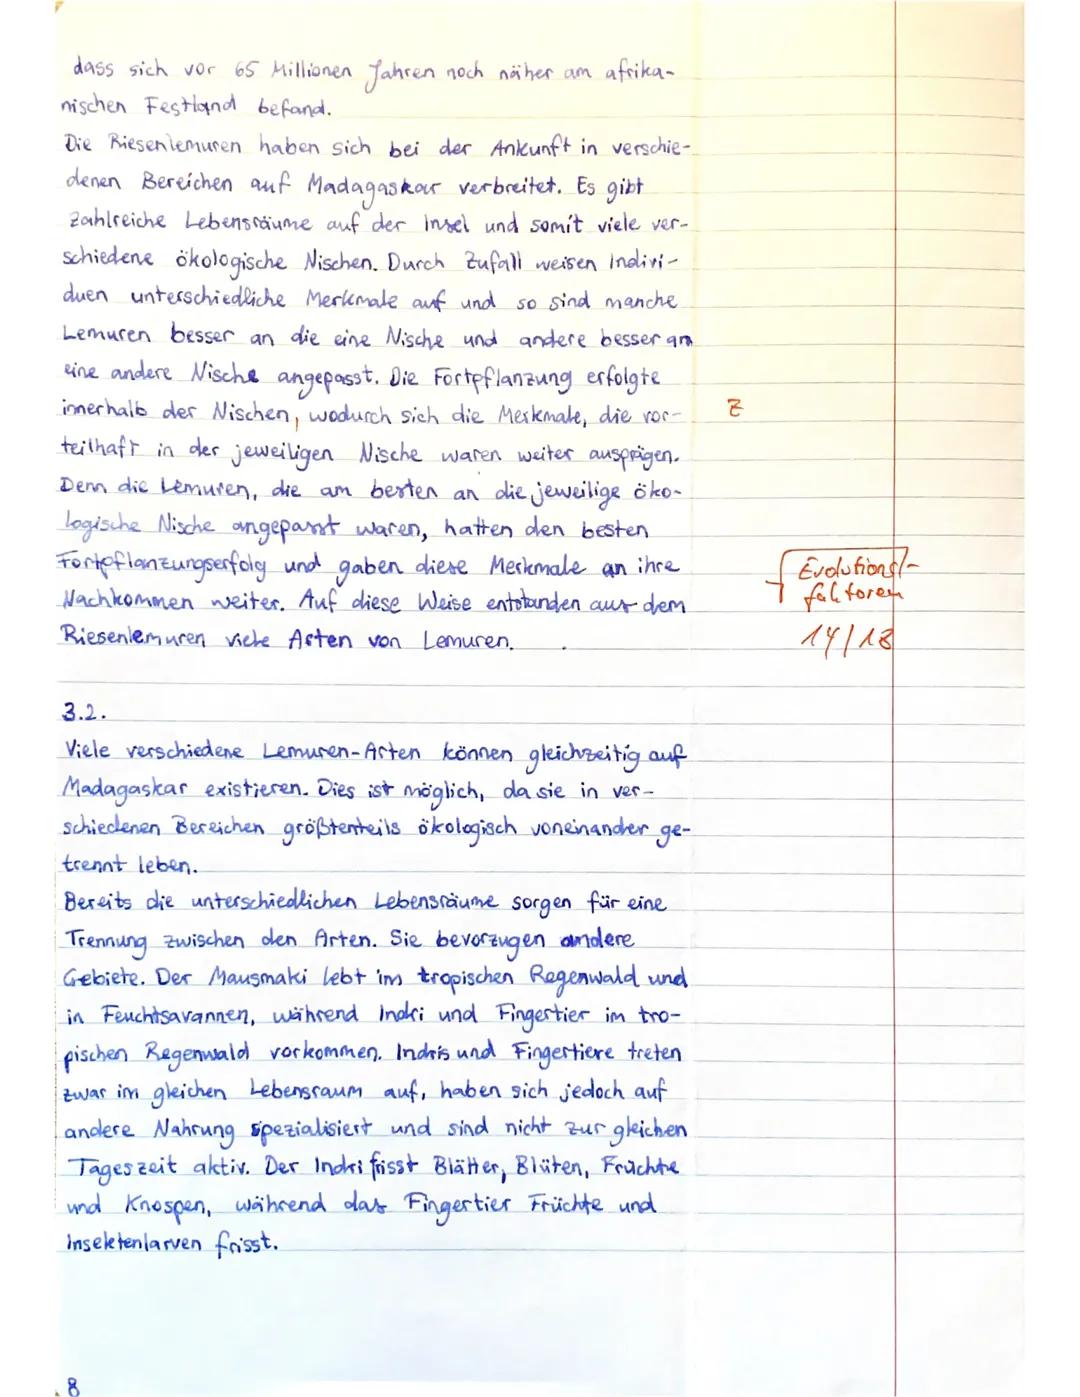 dass sich vor 65 Millionen Jahren noch näher am afrika-
nischen Festland befand.
Die Riesenlemuren haben sich bei der Ankunft in verschie-
denen Bereichen auf Madagaskar verbreitet. Es gibt
zahlreiche Lebensräume auf der Insel und somit viele ver-
schiedene ökologische Nischen. Durch Zufall weisen Indivi-
duen unterschiedliche Merkmale auf und so sind manche
Lemuren besser an die eine Nische und andere besser an
eine andere Nische angepasst. Die Fortpflanzung erfolgte
innerhalb der Nischen, wodurch sich die Merkmale, die vor-
Z
teilhaft in der jeweiligen Nische waren weiter ausprägen.
Denn die Lemuren, die am besten an die jeweilige öko-
logische Nische angepasst waren, hatten den besten
Fortpflanzungserfolg und gaben diese Merkmale an ihre
Nachkommen weiter. Auf diese Weise entstanden aus dem
Riesenlemuren viele Arten von Lemuren.
Evolutions-
faktoren
14/18
3.2.
Viele verschiedene Lemuren-Arten können gleichzeitig auf
Madagaskar existieren. Dies ist möglich, da sie in ver-
schiedenen Bereichen größtenteils ökologisch voneinander ge-
trennt leben.
Bereits die unterschiedlichen Lebensräume sorgen für eine
Trennung zwischen den Arten. Sie bevorzugen andere
Gebiete. Der Mausmaki lebt im tropischen Regenwald und
in Feuchtsavannen, während Indri und Fingertier im tro-
pischen Regenwald vorkommen. Indris und Fingertiere treten
zwar im gleichen Lebensraum auf, haben sich jedoch auf
andere Nahrung spezialisiert und sind nicht zur gleichen
Tageszeit aktiv. Der Indri frisst Blätter, Blüten, Früchte
und Knospen, während das Fingertier Früchte und
Insektenlarven frisst.
8